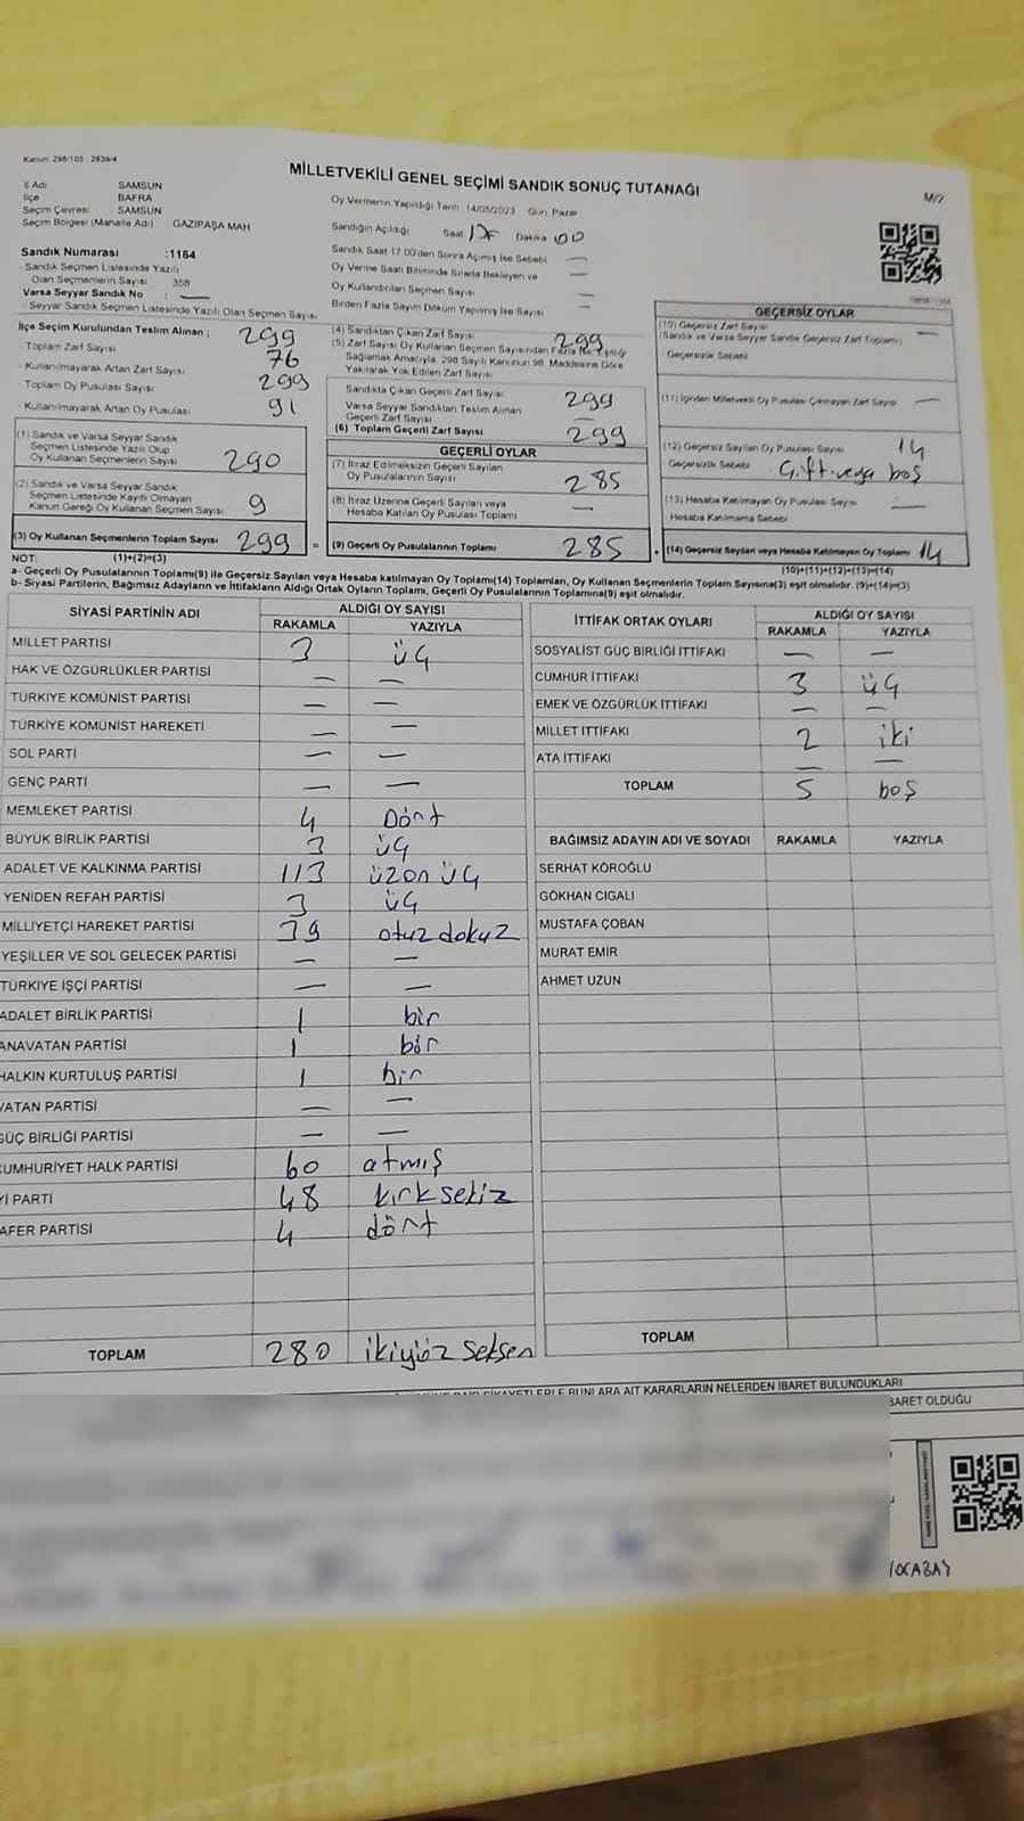 Kanun: 298/105 - 2839/4
MİLLETVEKİLİ GENEL SEÇİMİ SANDIK SONUÇ TUTANAĞI
M/2
İl Adı SAMSUN
İlçe BAFRA
Seçim Çevresi SAMSUN
Seçim Bölgesi (Mahalle Adı) GAZİPAŞA MAH
Oy Vermenin Yapıldığı Tarih: 14/05/2023 Gün: Pazar
Sandığın Açıldığı Saat 17 Dakika 00
Sandık Saat 17.00'den Sonra Açılmış İse Sebebi —
Oy Verme Saati Bitiminde Sırada Bekleyen ve
Oy Kullandırılan Seçmen Sayısı —
Birden Fazla Sayım Döküm Yapılmış İse Sayısı —
Sandık Numarası :1164
Sandık Seçmen Listesinde Yazılı
Olan Seçmenlerin Sayısı 358
Varsa Seyyar Sandık No : —
Seyyar Sandık Seçmen Listesinde Yazılı Olan Seçmen Sayısı
İlçe Seçim Kurulundan Teslim Alınan :
- Toplam Zarf Sayısı 299
- Kullanılmayarak Artan Zarf Sayısı 76
- Toplam Oy Pusulası Sayısı 299
- Kullanılmayarak Artan Oy Pusulası 91
(1) Sandık ve Varsa Seyyar Sandık
Seçmen Listesinde Yazılı Olup
Oy Kullanan Seçmenlerin Sayısı 290
(2) Sandık ve Varsa Seyyar Sandık
Seçmen Listesinde Kayıtlı Olmayan
Kanun Gereği Oy Kullanan Seçmen Sayısı 9
(3) Oy Kullanan Seçmenlerin Toplam Sayısı 299
(1)+(2)=(3)
(4) Sandıktan Çıkan Zarf Sayısı 299
(5) Zarf Sayısı Oy Kullanan Seçmen Sayısından Fazla İse Eşitliği
Sağlamak Amacıyla, 298 Sayılı Kanunun 98. Maddesine Göre
Yakılarak Yok Edilen Zarf Sayısı
Sandıkta Çıkan Geçerli Zarf Sayısı 299
Varsa Seyyar Sandıktan Teslim Alınan
Geçerli Zarf Sayısı —
(6) Toplam Geçerli Zarf Sayısı 299
GEÇERLİ OYLAR
(7) İtiraz Edilmeksizin Geçerli Sayılan
Oy Pusulalarının Sayısı 285
(8) İtiraz Üzerine Geçerli Sayılan veya
Hesaba Katılan Oy Pusulası Toplamı —
= (9) Geçerli Oy Pusulalarının Toplamı 285
GEÇERSİZ OYLAR
(10) Geçersiz Zarf Sayısı —
(Sandık ve Varsa Seyyar Sandık Geçersiz Zarf Toplamı)
Geçersizlik Sebebi
(11) İçinden Milletvekili Oy Pusulası Çıkmayan Zarf Sayısı —
(12) Geçersiz Sayılan Oy Pusulası Sayısı 14
Geçersizlik Sebebi Çift veya boş
(13) Hesaba Katılmayan Oy Pusulası Sayısı —
Hesaba Katılmama Sebebi
+ (14) Geçersiz Sayılan veya Hesaba Katılmayan Oy Toplamı 14
(10)+(11)+(12)+(13)=(14)
NOT:
a- Geçerli Oy Pusulalarının Toplamı(9) ile Geçersiz Sayılan veya Hesaba katılmayan Oy Toplamı(14) Toplamları, Oy Kullanan Seçmenlerin Toplam Sayısına(3) eşit olmalıdır. (9)+(14)=(3)
b- Siyasi Partilerin, Bağımsız Adayların ve İttifakların Aldığı Ortak Oyların Toplamı, Geçerli Oy Pusulalarının Toplamına(9) eşit olmalıdır.
SİYASİ PARTİNİN ADI ALDIĞI OY SAYISI
RAKAMLA YAZIYLA
MİLLET PARTİSİ 3 üç
HAK VE ÖZGÜRLÜKLER PARTİSİ — —
TÜRKİYE KOMÜNİST PARTİSİ — —
TÜRKİYE KOMÜNİST HAREKETİ — —
SOL PARTİ — —
GENÇ PARTİ — —
MEMLEKET PARTİSİ 4 Dört
BÜYÜK BİRLİK PARTİSİ 3 üç
ADALET VE KALKINMA PARTİSİ 113 üzon üç
YENİDEN REFAH PARTİSİ 3 üç
MİLLİYETÇİ HAREKET PARTİSİ 39 otuz dokuz
YEŞİLLER VE SOL GELECEK PARTİSİ — —
TÜRKİYE İŞÇİ PARTİSİ — —
ADALET BİRLİK PARTİSİ 1 bir
ANAVATAN PARTİSİ 1 bir
HALKIN KURTULUŞ PARTİSİ 1 bir
VATAN PARTİSİ — —
GÜÇ BİRLİĞİ PARTİSİ — —
CUMHURİYET HALK PARTİSİ 60 atmış
Yİ PARTİ 48 kırk sekiz
AFER PARTİSİ 4 dört
TOPLAM 280 ikiyüz seksen
İTTİFAK ORTAK OYLARI ALDIĞI OY SAYISI
RAKAMLA YAZIYLA
SOSYALİST GÜÇ BİRLİĞİ İTTİFAKI — —
CUMHUR İTTİFAKI 3 üç
EMEK VE ÖZGÜRLÜK İTTİFAKI — —
MİLLET İTTİFAKI 2 iki
ATA İTTİFAKI — —
TOPLAM 5 boş
BAĞIMSIZ ADAYIN ADI VE SOYADI RAKAMLA YAZIYLA
SERHAT KÖROĞLU
GÖKHAN CIGALI
MUSTAFA ÇOBAN
MURAT EMİR
AHMET UZUN
TOPLAM
ŞİKAYETLERLE BUNLARA AİT KARARLARIN NELERDEN İBARET BULUNDUKLARI
BARET OLDUĞU